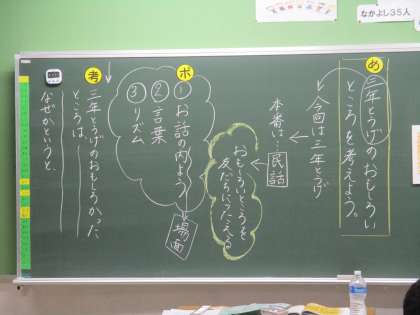 なかよし35人
あ
三年とうげのおもしろい
ところを考えよう。
今回は三年とうげ
本番は…民話
おもしろいところを
友だちにつたえる
ポ
①お話の内よう
②言葉
③リズム
場面
考
三年とうげのおもしろかった
ところは、
なぜかというと、